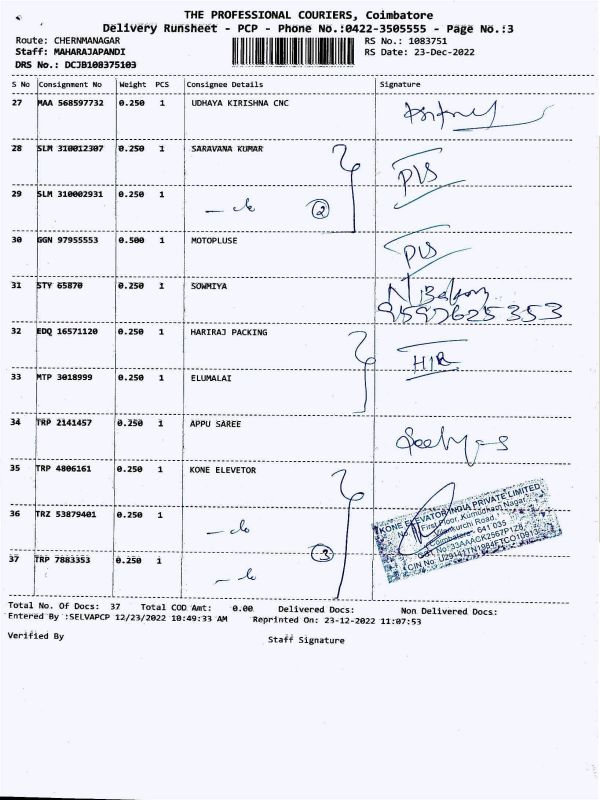 THE PROFESSIONAL COURIERS, Coimbatore
Delivery Runsheet - PCP - Phone No.:0422-3505555 - Page No.:3
Route: CHERNMANAGAR
RS No.: 1083751
Staff: MAHARAJAPANDI
RS Date: 23-Dec-2022
DRS No.: DCJB108375103
S No Consignment No Weight PCS Consignee Details Signature
27 MAA 568597732 0.250 1 UDHAYA KIRISHNA CNC
28 SLM 310012307 0.250 1 SARAVANA KUMAR
PVS
29 SLM 310002931 0.250 1
2
30 GGN 97955553 0.500 1 MOTOPLUSE
PVS
31 STY 65870 0.250 1 SOWMIYA
32 EDQ 16571120 0.250 1 HARIRAJ PACKING
33 MTP 3018999 0.250 1 ELUMALAI
34 TRP 2141457 0.250 1 APPU SAREE
35 TRP 4806161 0.250 1 KONE ELEVETOR
KONE ELEVATOR INDIA PRIVATE LIMITED
First Floor, Kumudham Nagar,
Vilankurchi Road,
Coimbatore - 641 035
36 TRZ 53879401 0.250 1
3
37 TRP 7883353 0.250 1
Total No. Of Docs: 37 Total COD Amt: 0.00 Delivered Docs: Non Delivered Docs:
Entered By :SELVAPCP 12/23/2022 10:49:33 AM Reprinted On: 23-12-2022 11:07:53
Verified By
Staff Signature